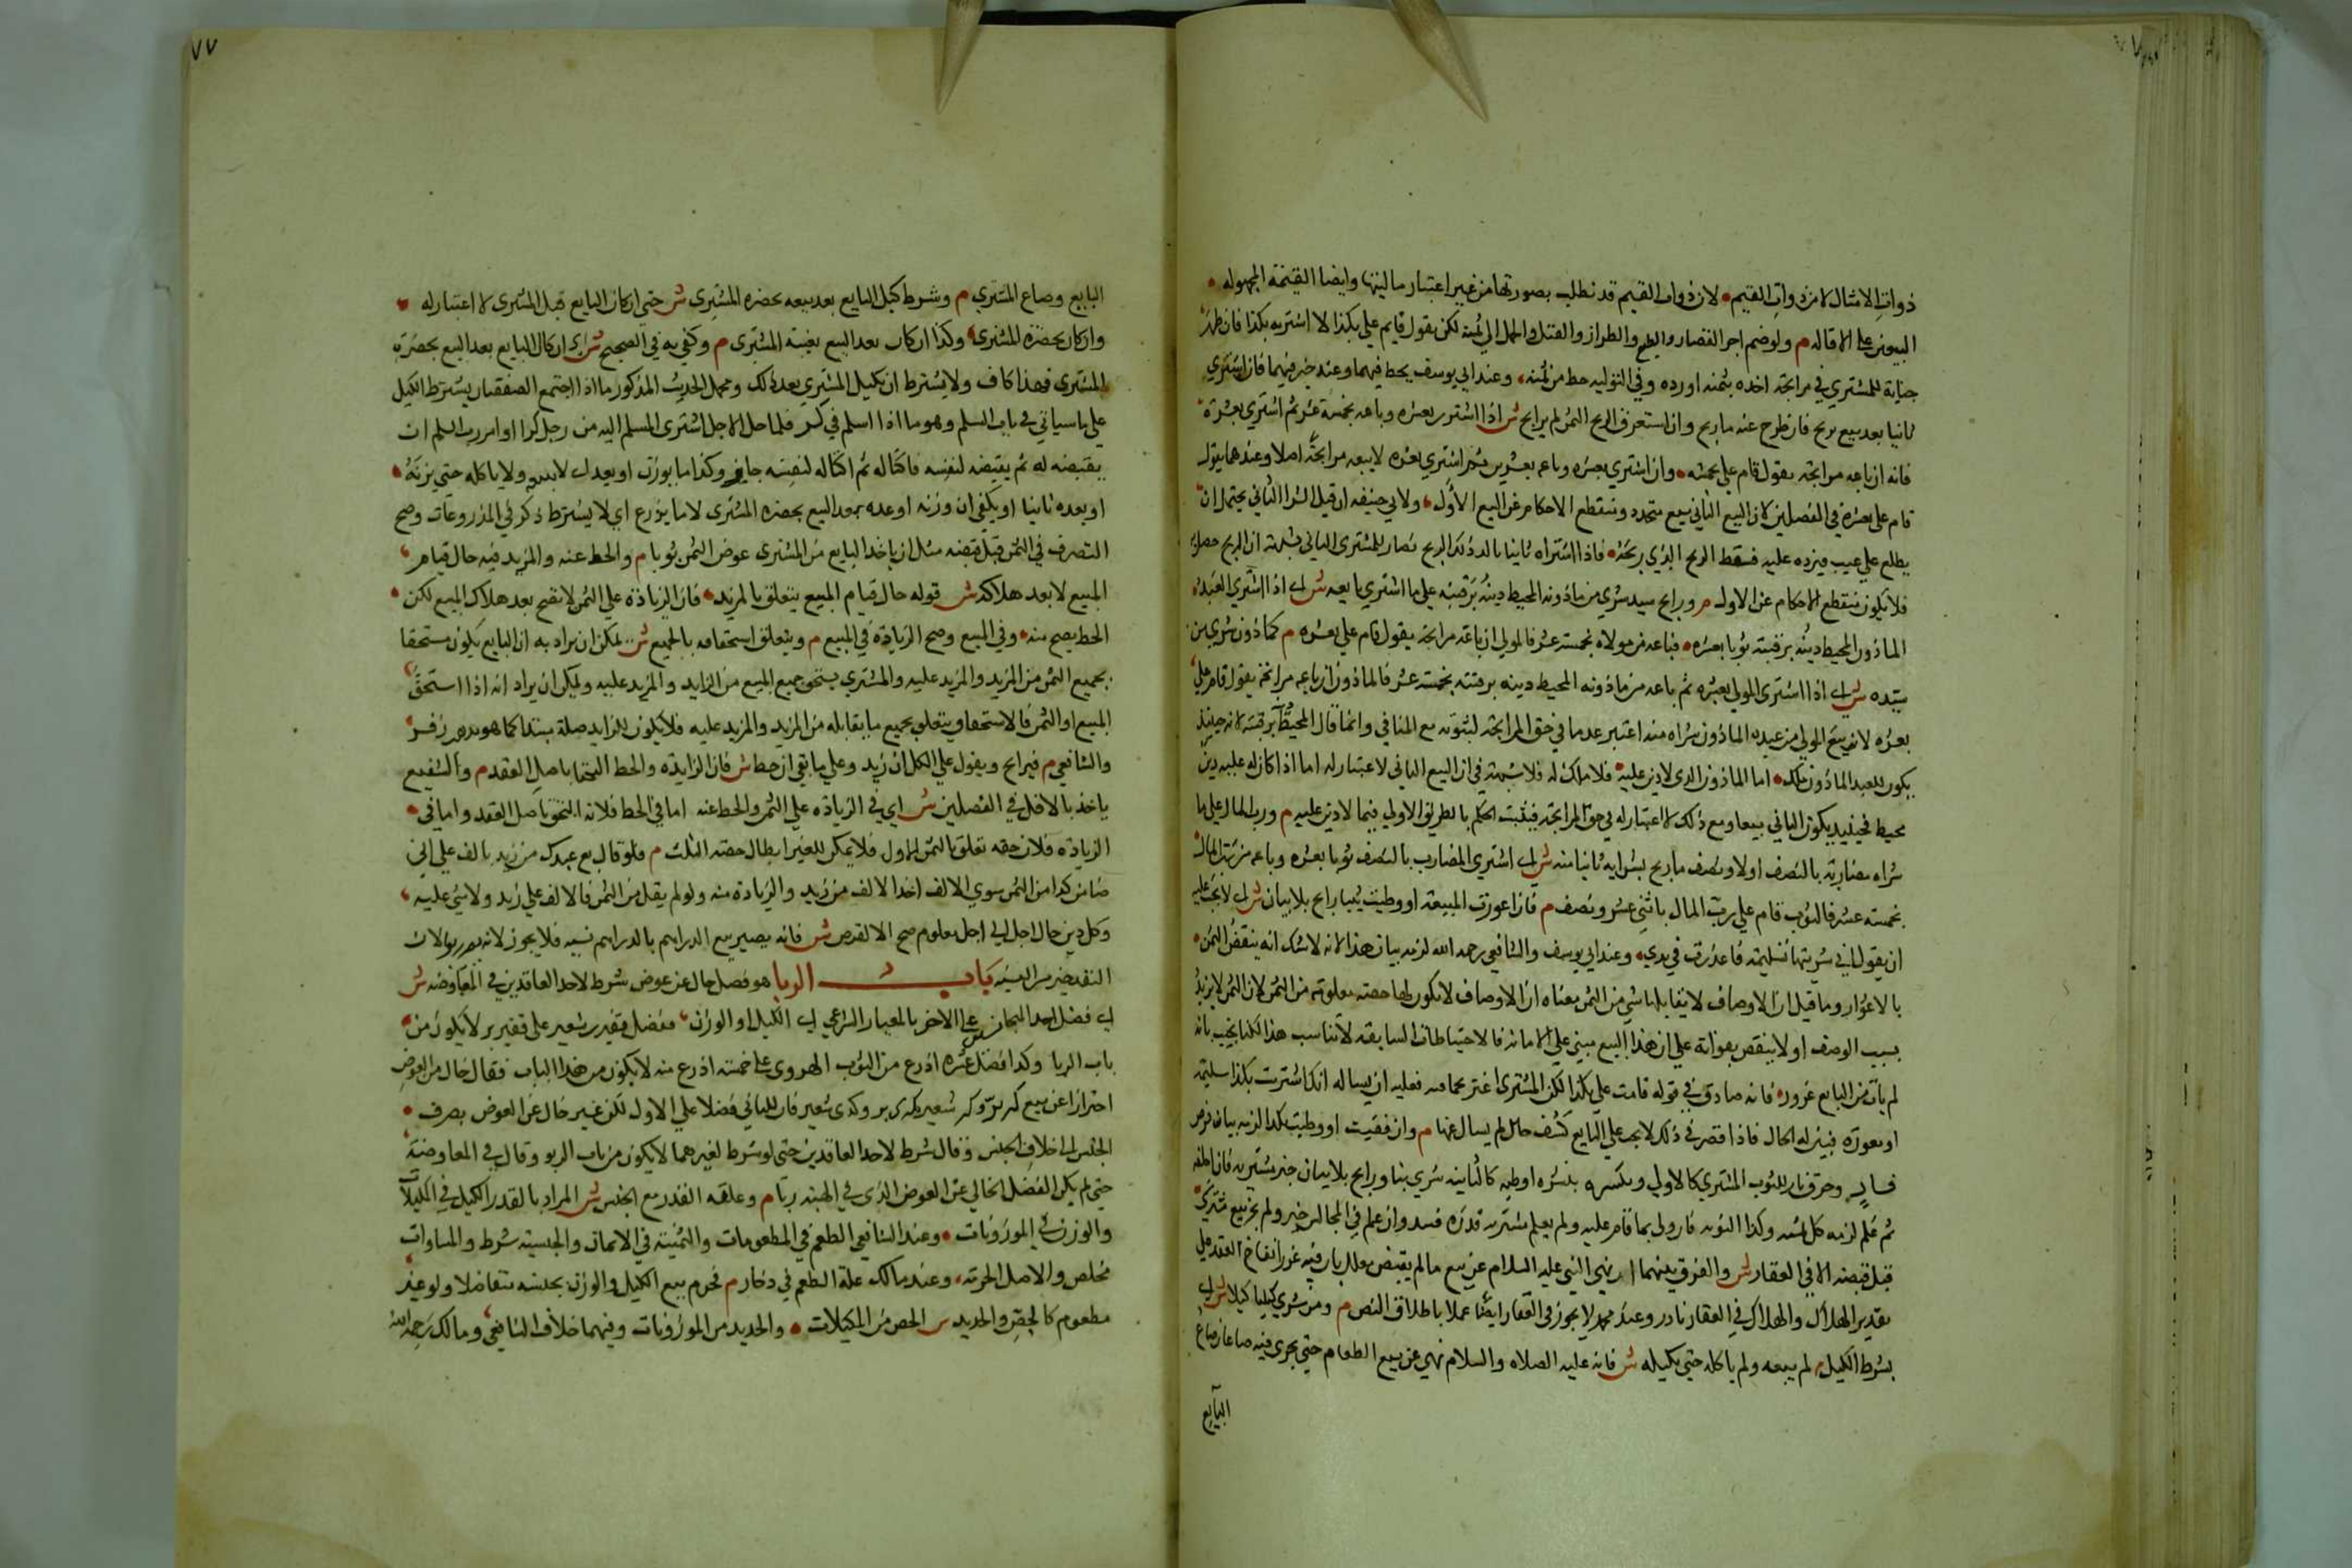 ذوات الامثال لا من ذوات القيم لان ذوات القيم قد تطلب بصورتها من غير اعتبار ماليتها وايضا القيمة المجهوله
م ولو ضم اجر القصار والصبغ والطراز والفتل والحمل الي ثمنه لكن يقول قام علي بكذا لا اشتريه بكذا فان ظهر
خيانة للمشتري في مرابحة اخذه بثمنه او رده وفي التوليه حط من ثمنه وعند ابي يوسف يحط فيهما وعند خير فيهما فان اشتري
ثانيا بعد بيع بربح فان رابح طرح عنه ما ربح وان استغرق الربح الثمن لم يرابح ش اذا اشتري بعشره وباعه بخمسة عشر ثم اشتري بعشرة
فانه ان باعه مرابحة يقول قام علي بخمسه وان اشتري بعشره وباعه بعشرين ثم اشتري بعشره لا يبيعه مرابحة اصلا وعندهما يقول
قام علي بعشرة في الفصلين لان البيع الثاني بيع متجدد ومنقطع الاحكام عن البيع الاول ولابي حنيفه ان قبل الشرا الثاني يحتمل ان
يطلع علي عيب فيرده عليه فسقط الربح الذي ربحه فاذا اشتراه ثانيا تاكد ذلك الربح فصار للمشتري الثاني شبهة ان الربح حصل به
فلا يكون منقطع الاحكام عن الاول م ورابح سيد شري من ماذونه المحيط دينه برقبته علي ما اشتري بايعه ش اي اذا اشتري العبد
الماذون المحيط دينه برقبته ثوبا بعشره فباعه من مولاه بخمسة عشر فالمولي ان باعه مرابحة يقول قام علي بعشره م كماذون شري من
سيده ش اي اذا اشتري المولي بعشره ثم باعه من ماذونه المحيط دينه برقبته بخمسة عشر فالماذون ان باعه مرابحة يقول قام علي
بعشره لان بيع المولي من عبده الماذون شراه منه اعتبر عدما في حق المرابحة لثبوته مع المنافي وانما قال المحيط برقبته لانه حينئذ
يكون للعبد الماذون ملك اما الماذون الذي لا دين عليه فلا ملك له فلا شبهة في ان البيع الثاني لا اعتبار له اما اذا كان له عليه دين
محيط فحينئذ يكون الثاني بيعا ومع ذلك لا اعتبار له في حق المرابحة فيثبت الحكم بالطريق الاولي فيما لا دين عليه م ورب المال علي ما
شراه مضاربه بالنصف اولا ونصف ما ربح بشرايه ثانيا منه ش اي اشتري المضارب بالنصف ثوبا بعشره وباعه من رب المال
بخمسة عشر فالثوب قام علي رب المال باثني عشر ونصف م فان اعورت المبيعة او وطيت ثيبا رابح بلا بيان ش اي لا يجب عليه
ان يقول اني شريتها سليمة فاعورت في يدي وعند ابي يوسف والشافعي رحمه الله لزمه بيان هذا لانه لا شك انه ينقص الثمن
بالاعورار وما قيل ان الاوصاف لا يقابلها شي من الثمن معناه ان الاوصاف لا يكون لها حصة معلومة من الثمن لان الثمن لا يزيد
بسبب الوصف او لا ينقص بفواته علي ان هذا البيع مبني علي الامانة فالاحتياطات السابقه لا تناسب هذا لكنا نجيب بانه
لم يات من البايع غرور فانه صادق في قوله قامت علي بكذا لكن المشتري اغتر بحماقته فعليه ان يساله انك اشتريت بكذا سليمة
او معورة فيبين له الحال فاذا قصر في ذلك لا يجب علي البايع كشف حال لم يسال عنها م وان فقيت او وطيت بكرا لزمه بيانه قرض
فار وحرق نار للثوب المشتري كالاولي وتكسره بنشره وطيه كالثانيه شري بنسا ورابح بلا بيان خير مشتريه فان اتلفه
ثم علم لزمه كل ثمنه وكذا التوليه فان ولي بما قام عليه ولم يعلم مشتريه قدره فسد وان علم في المجلس خير ولم يجز بيع مشتري
قبل قبضه الا في العقار ش والفرق بينهما ان نهي النبي عليه السلام عن بيع ما لم يقبض معلل بان فيه غرر انفساخ العقد علي
تقدير الهلاك والهلاك في العقار نادر وعند محمد لا يجوز في العقار ايضا عملا باطلاق النص م ومن شري كيليا كيلا ش اي
بشرط الكيل م لم يبعه ولم ياكله حتي يكيله ش فانه عليه الصلاه والسلام نهي عن بيع الطعام حتي يجري فيه صاعان صاع
البايع
٧٧
البايع وصاع المشتري م وشرط كيل البايع بعد بيعه بحضرة المشتري ش حتي ان كال البايع قبل المشتري لا اعتبار له
وان كان بحضرة المشتري وكذا ان كال بعد البيع بغيبة المشتري م وكفي به في الصحيح ش اي ان كال البايع بعد البيع بحضرة
المشتري فهذا كاف ولا يشترط ان يكيل المشتري بعد ذلك ومحمل الحديث المذكور ما اذا اجتمع الصفقتان بشرط الكيل
علي ما سياتي في باب السلم وهو ما اذا اسلم في كر فلما حل الاجل اشتري المسلم اليه من رجل كرا او امر رب السلم ان
يقبضه له ثم يقبضه لنفسه فاكتاله ثم اكتاله لنفسه جاز وكذا ما يوزن او يعد اي لا يبيعه ولا ياكله حتي يزنه
او يعده ثانيا او يكفي ان وزنه او عده بعد البيع بحضرة المشتري لا ما يذرع اي لا يشترط ذكر في المذروعات وصح
التصرف في الثمن قبل قبضه مثل ان ياخذ البايع من المشتري عوض الثمن ثوبا م والحط عنه والمزيد فيه حال قيام
المبيع لا بعد هلاكه ش قوله حال قيام المبيع يتعلق بالمزيد فان الزيادة علي الثمن لا تصح بعد هلاك المبيع لكن
الحط يصح منه وفي المبيع وصح الزيادة في المبيع م ويتعلق استحقاقه بالجميع ش يمكن ان يراد به ان البايع يكون مستحقا
بجميع الثمن من المزيد والمزيد عليه والمشتري يستحق جميع المبيع من الزايد والمزيد عليه ويمكن ان يراد انه اذا استحق
المبيع او الثمن فالاستحقاق يتعلق بجميع ما يقابله من المزيد والمزيد عليه فلا يكون الزايد صلة مبتدا كما هو مذهب زفر
والشافعي م فيرابح ويقول علي الكل ان زيد وعلي ما بقي ان حط ش فان الزيادة والحط التحقا باصل العقد م والشفيع
ياخذ بالاقل في الفصلين ش اي في الزيادة علي الثمن والحط عنه اما في الحط فلانه التحق باصل العقد واما في
الزيادة فلان حقه تعلق بالثمن الاول فلا يمكن للغير ابطال حقه الثابت م فلو قال بع عبدك من زيد بالف علي اني
ضامن كذا من الثمن سوي الالف اخذ الالف من زيد والزيادة منه ولو لم يقل من الثمن فالالف علي زيد ولا شي عليه
وكل دين حال اجل الي اجل معلوم صح الا القرض ش فانه يصير بيع الدراهم بالدراهم نسيه فلا يجوز لانه يصير ربوا لان
النقد خير من النسيه باب الربا هو فضل خال عن عوض شرط لاحد العاقدين في المعاوضه ش
اي فضل احد المتجانسين علي الاخر بالمعيار الشرعي اي الكيل او الوزن ففضل قفيزي شعير علي قفيز بر لا يكون من
باب الربا وكذا فضل عشرة اذرع من الثوب الهروي علي خمسة اذرع منه لا يكون من هذا الباب فقال خال من العوض
احترازا عن بيع كر بر وكر شعير بكري بر وكري شعير فان للثاني فضلا علي الاول لكن غير خال عن العوض بصرف
الجنس الي خلاف الجنس وقال شرط لاحد العاقدين حتي لو شرط لغيرهما لا يكون من باب الربو وقال في المعاوضة
حتي لم يكن الفضل الخالي عن العوض الذي في الهبه ربا م وعلته القدر مع الجنس ش المراد بالقدر الكيل في المكيلات
والوزن في الموزونات وعند الشافعي الطعم في المطعومات والثمنية في الاثمان والجنسيه شرط والمساوات
مخلص والاصل الحرمه وعند مالك علة الطعم في دخار م فحرم بيع الكيل والوزن بجنسه متفاضلا ولو غير
مطعوم كالجص والحديد ش الجص من المكيلات والحديد من الموزونات وفيهما خلاف الشافعي ومالك رحمه الله